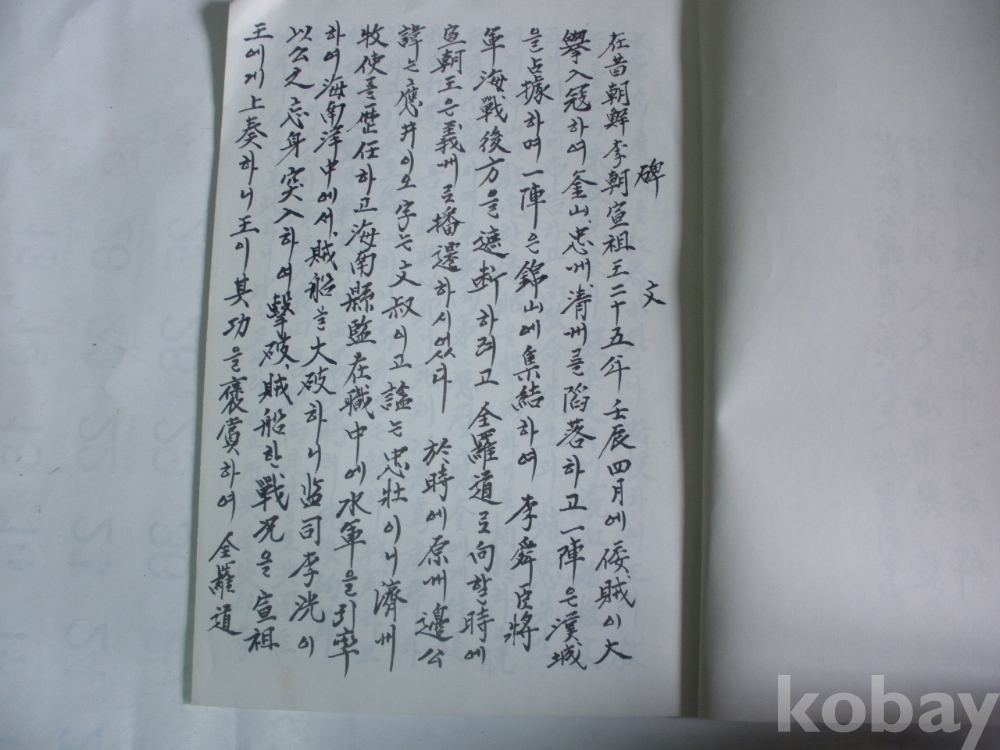 碑文
在昔朝鮮李朝宣祖王二十五年 壬辰四月에 倭賊이 大
擧入寇하여 釜山、忠州、淸州를 陷落하고 一陣은 漢城
을 占據하며 一陣은 錦山에 集結하여 李舜臣將
軍海戰後方을 遮斷하려고 全羅道로 向할 時에
宣朝王은 義州로 播遷하시였다 於時에 原州邊公
諱는 應井이오 字는 文叔이고 諡는 忠壯이니 濟州
牧使를 歷任하고 海南縣監在職中에 水軍을 引率
하여 海南洋中에서、賊船을 大破하니 监司李洸이
以公之忘身突入하여 擊破、賊船한、戰況을 宣祖
王에게 上奏하니 王이 其功을 褒賞하여 全羅道
kobay